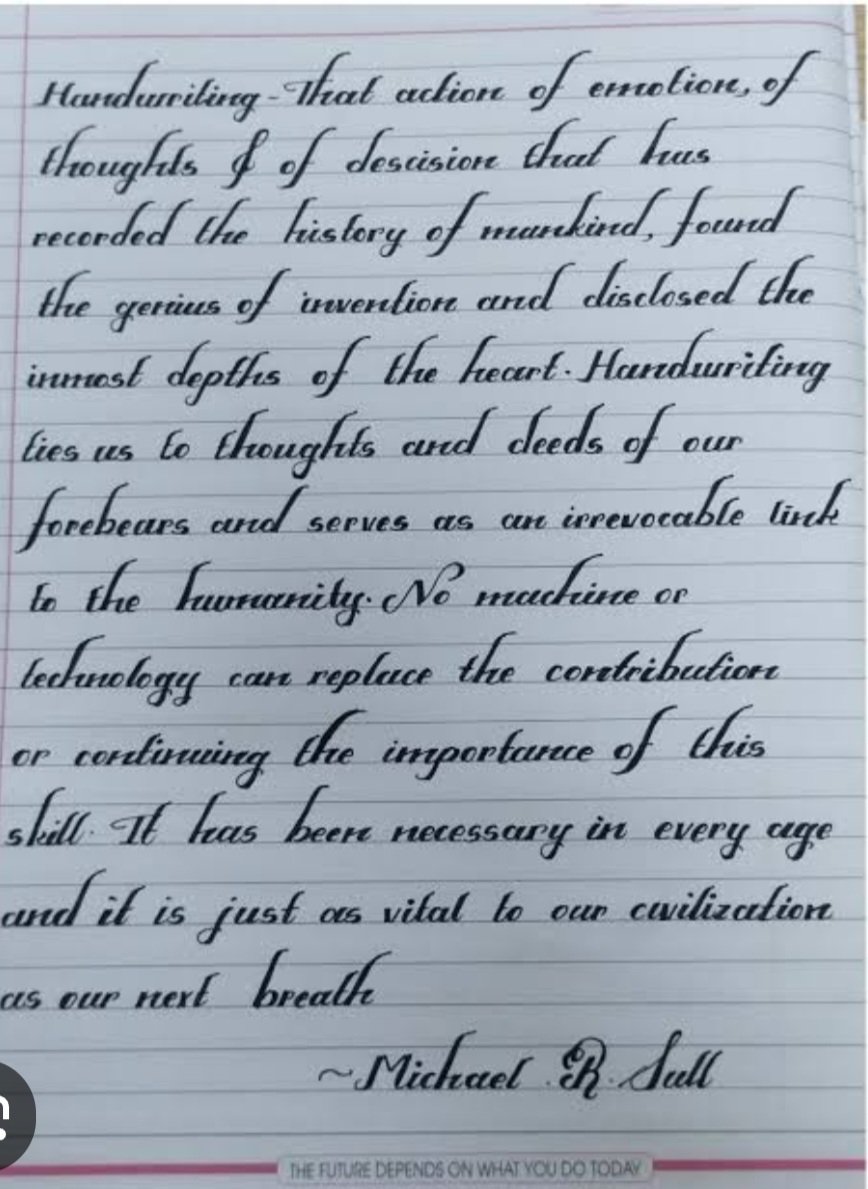 Handwriting - That action of emotion, of
thoughts & of descision that has
recorded the history of mankind, found
the genius of invention and disclosed the
inmost depths of the heart. Handwriting
ties us to thoughts and deeds of our
forebears and serves as an irrevocable link
to the humanity. No machine or
technology can replace the contribution
or continuing the importance of this
skill. It has been necessary in every age
and it is just as vital to our civilization
as our next breath
~Michael R. Sull
THE FUTURE DEPENDS ON WHAT YOU DO TODAY